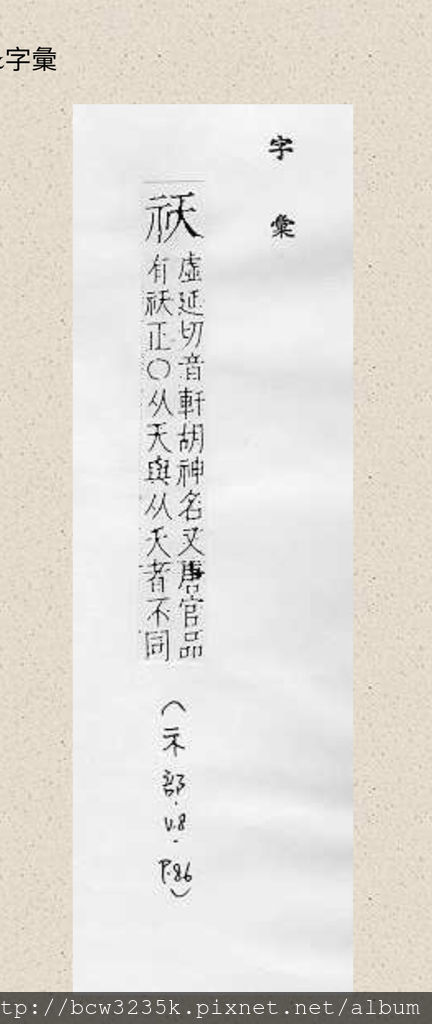 字彙
字彙
祆
虛延切音軒胡神名又唐官品
有祆正〇从天與从夭者不同
(示部.V.8.P.86)
tp://bcw3235k.pixnet.net/album